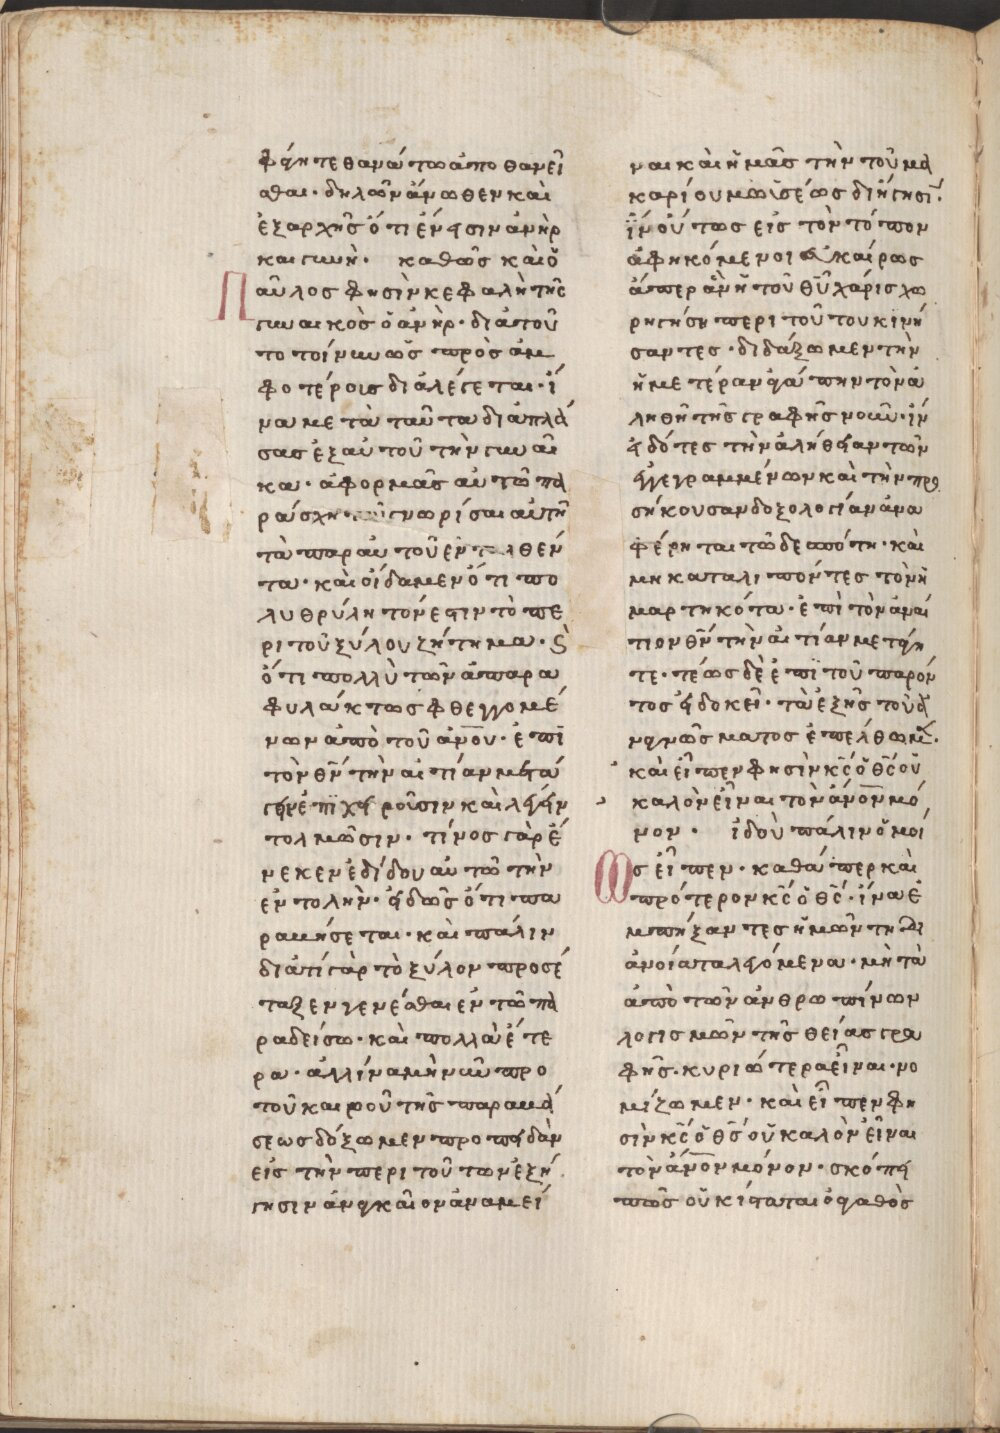 φάγητε θανάτω ἀποθανεῖ
σθαι· δηλῶν ἄνωθεν καὶ
ἐξαρχῆς ὅτι ἕν ἐστιν ἀνὴρ
καὶ γυνὴ· καθὼς καὶ ὁ
Παῦλος φησὶν κεφαλὴ τῆς
γυναικὸς ὁ ἀνὴρ· διὰ τοῦ
το τοίνυν ὡς πρὸς ἀμ
φοτέροις διαλέγεται· ἵ
να μετὰ ταῦτα διαπλά
σας ἐξ αὐτοῦ τὴν γυναῖ
κα· ἀφορμὰς αὐτῶ πα
ράσχη γνωρίσαι αὐτῆ
τὰ παρ αὐτοῦ ἐνταλθέν
τα· καὶ οἶδα μὲν ὅτι πο
λυθρύλητόν ἐστιν τὸ πε
ρὶ τοῦ ξύλου ζήτημα· ϗ
ὅτι πολλὺ τῶν ἀπαρα
φυλάκτως φθεγγομέ
νων ἀπὸ τοῦ ἀνου· ἐπὶ
τὸν θν τὴν αἰτίαν μετά
γειν ἐπιχειροῦσιν καὶ λέγειν
τολμῶσιν· τίνος γὰρ ἕ
νεκεν ἐδίδου αὐτῶ τὴν
ἐντολὴν· εἰδὼς ὅτι πα
ραμήσεται· καὶ πάλιν
διατί γὰρ τὸ ξύλον προσέ
ταξεν γενέσθαι ἐν τῶ πα
ραδείσω· καὶ πολλὰ ἕτε
ρα· ἀλλ ἵνα μὴ νῦν πρὸ
τοῦ καιροῦ τῆς παραβά
σεως δόξωμεν προπηδᾶν
εἰς τὴν περὶ τούτων ἐξή
γησιν ἀναγκαῖον ἀναμεῖ
ναι καὶ ἡμᾶς τὴν τοῦ μα
καρίου μωϋσέως διήγησι·
ἵν οὕτως εἰς τὸν τόπον
ἀφηκόμενοι εὐκαίρως
ἅπερ ἂν ἡ τοῦ θυ χάρις χω
ρηγήση περὶ τούτου κινή
σαντες· διδάξωμεν τὴν
ἡμετέραν ἀγάπην τὸν ἀ
ληθῆ τῆς γραφῆς νοῦν· ἵν
εἰδότες τὴν ἀλήθειαν τῶν
ἐγγεγραμμένων καὶ τὴν προ
σήκουσαν δοξολογίαν ἀνα
φέρηται τῶ δεσπότη· καὶ
μὴ καταλιπόντες τὸν ἡ
μαρτηκότα· ἐπὶ τὸν ἀναί
τιον θν τὴν αἰτίαν μετάγη
τε· τέως δὲ ἐπὶ τοῦ παρόν
τος εἰ δοκεῖ· τὰ ἑξῆς τοῦ ἀ
ναγνώσματος ἐπέλθωμεν·
καὶ εἶπεν φησὶν κς ὁ θς οὐ
καλὸν εἶναι τὸν ἄνον μό
νον· ἰδοὺ πάλιν ὁμοί
ως εἶπεν· καθάπερ καὶ
πρότερον κς ὁ θς· ἵνα ἐ
μπήξαντες ἡμῶν τῆ δι
ανοία τὰ λεγόμενα· μὴ τὰ
ἀπὸ τῶν ἀνθρωπίνων
λογισμῶν τῆς θείας γρα
φῆς· κυριώτερα εἶναι· νο
μίζωμεν· καὶ εἶπεν φη
σὶν κς ὁ θς οὐ καλὸν εἶναι
τὸν ἄνον μόνον· σκόπει
πῶς οὐκ ἵσταται ὁ ἀγαθὸς